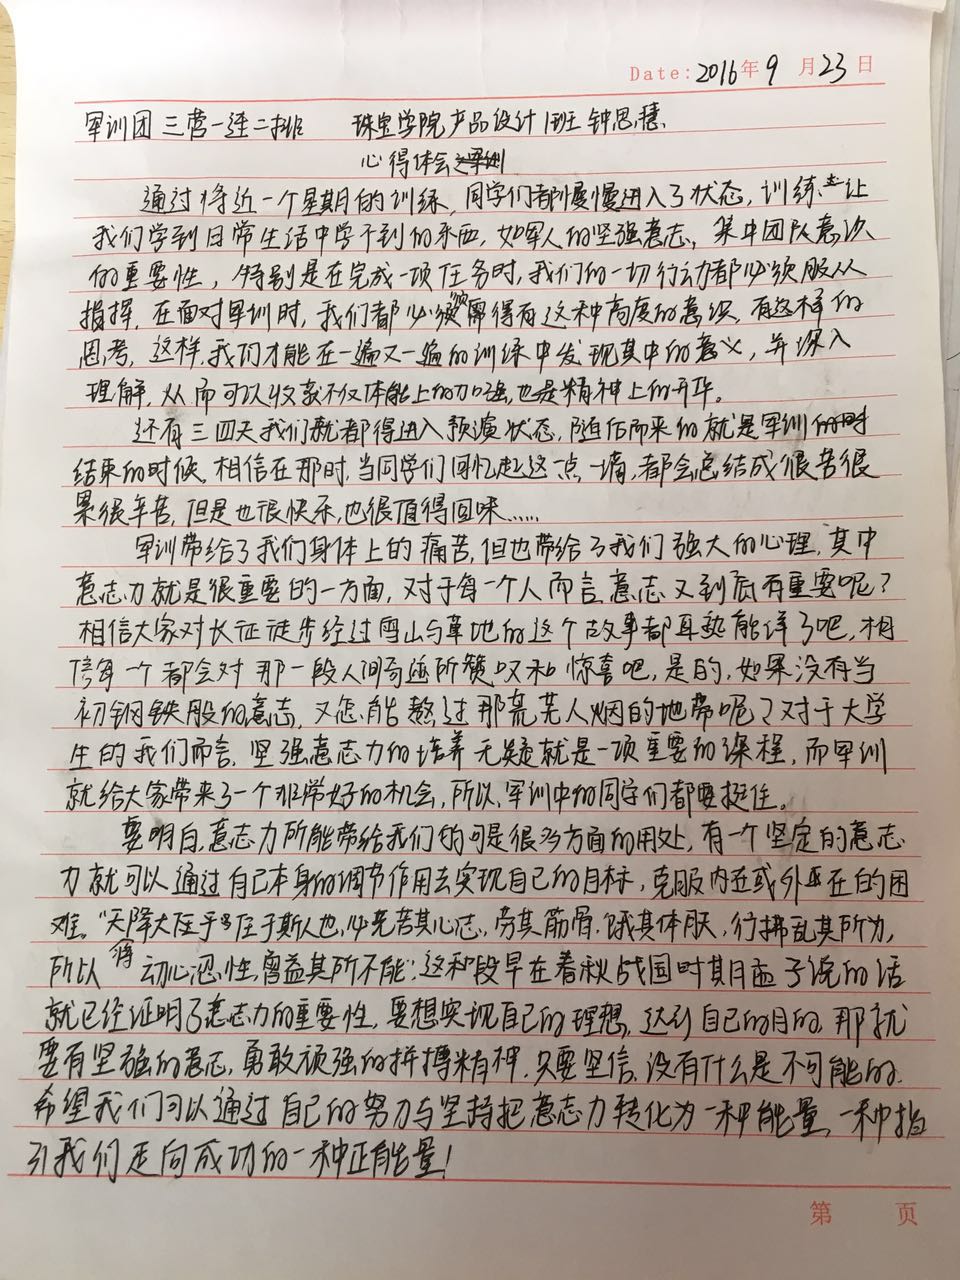 Date: 2016年9月23日
军训团三营一连二排 珠宝学院产品设计1班 钟思慧
心得体会
通过将近一个星期的训练,同学们都慢慢进入了状态,训练让
我们学到日常生活中学不到的东西,如军人的坚强意志,集中团队意识
的重要性,特别是在完成一项任务时,我们的一切行动都必须服从
指挥,在面对军训时,我们都必须得有这种高度的意识,有这样的
思考,这样,我们才能在一遍又一遍的训练中发现其中的意义,并深入
理解,从而可以收获不仅体能上的加强,也是精神上的升华。
还有三四天我们就都得进入预演状态,随后而来的就是军训的
结束的时候,相信在那时,当同学们回忆起这一点一滴,都会总结成很苦很
累很辛苦,但是也很快乐,也很值得回味......
军训带给了我们身体上的痛苦,但也带给了我们强大的心理,其中
意志力就是很重要的一方面,对于每一个人而言意志又到底有重要呢?
相信大家对长征徒步经过雪山与草地的这个故事都耳熟能详了吧,相
信每一个都会对那一段人间奇迹所赞叹和惊喜吧,是的,如果没有当
初钢铁般的意志,又怎能熬过那荒芜人烟的地带呢?对于大学
生的我们而言,坚强意志力的培养无疑就是一项重要的课程,而军训
就给大家带来了一个非常好的机会,所以,军训中的同学们都要挺住。
要明白,意志力所能带给我们的可是很多方面的用处,有一个坚定的意志
力就可以通过自己本身的调节作用去实现自己的目标,克服内在或外在的困
难。“天降大任于斯人也,必先苦其心志,劳其筋骨,饿其体肤,行拂乱其所为,
所以动心忍性,曾益其所不能”,这段早在春秋战国时期孟子说的话
就已经证明了意志力的重要性,要想实现自己的理想,达到自己的目的,那就
要有坚强的意志,勇敢顽强的拼搏精神,只要坚信,没有什么是不可能的,
希望我们可以通过自己的努力与坚持把意志力转化为一种能量,一种指
引我们走向成功的一种正能量!
第 页